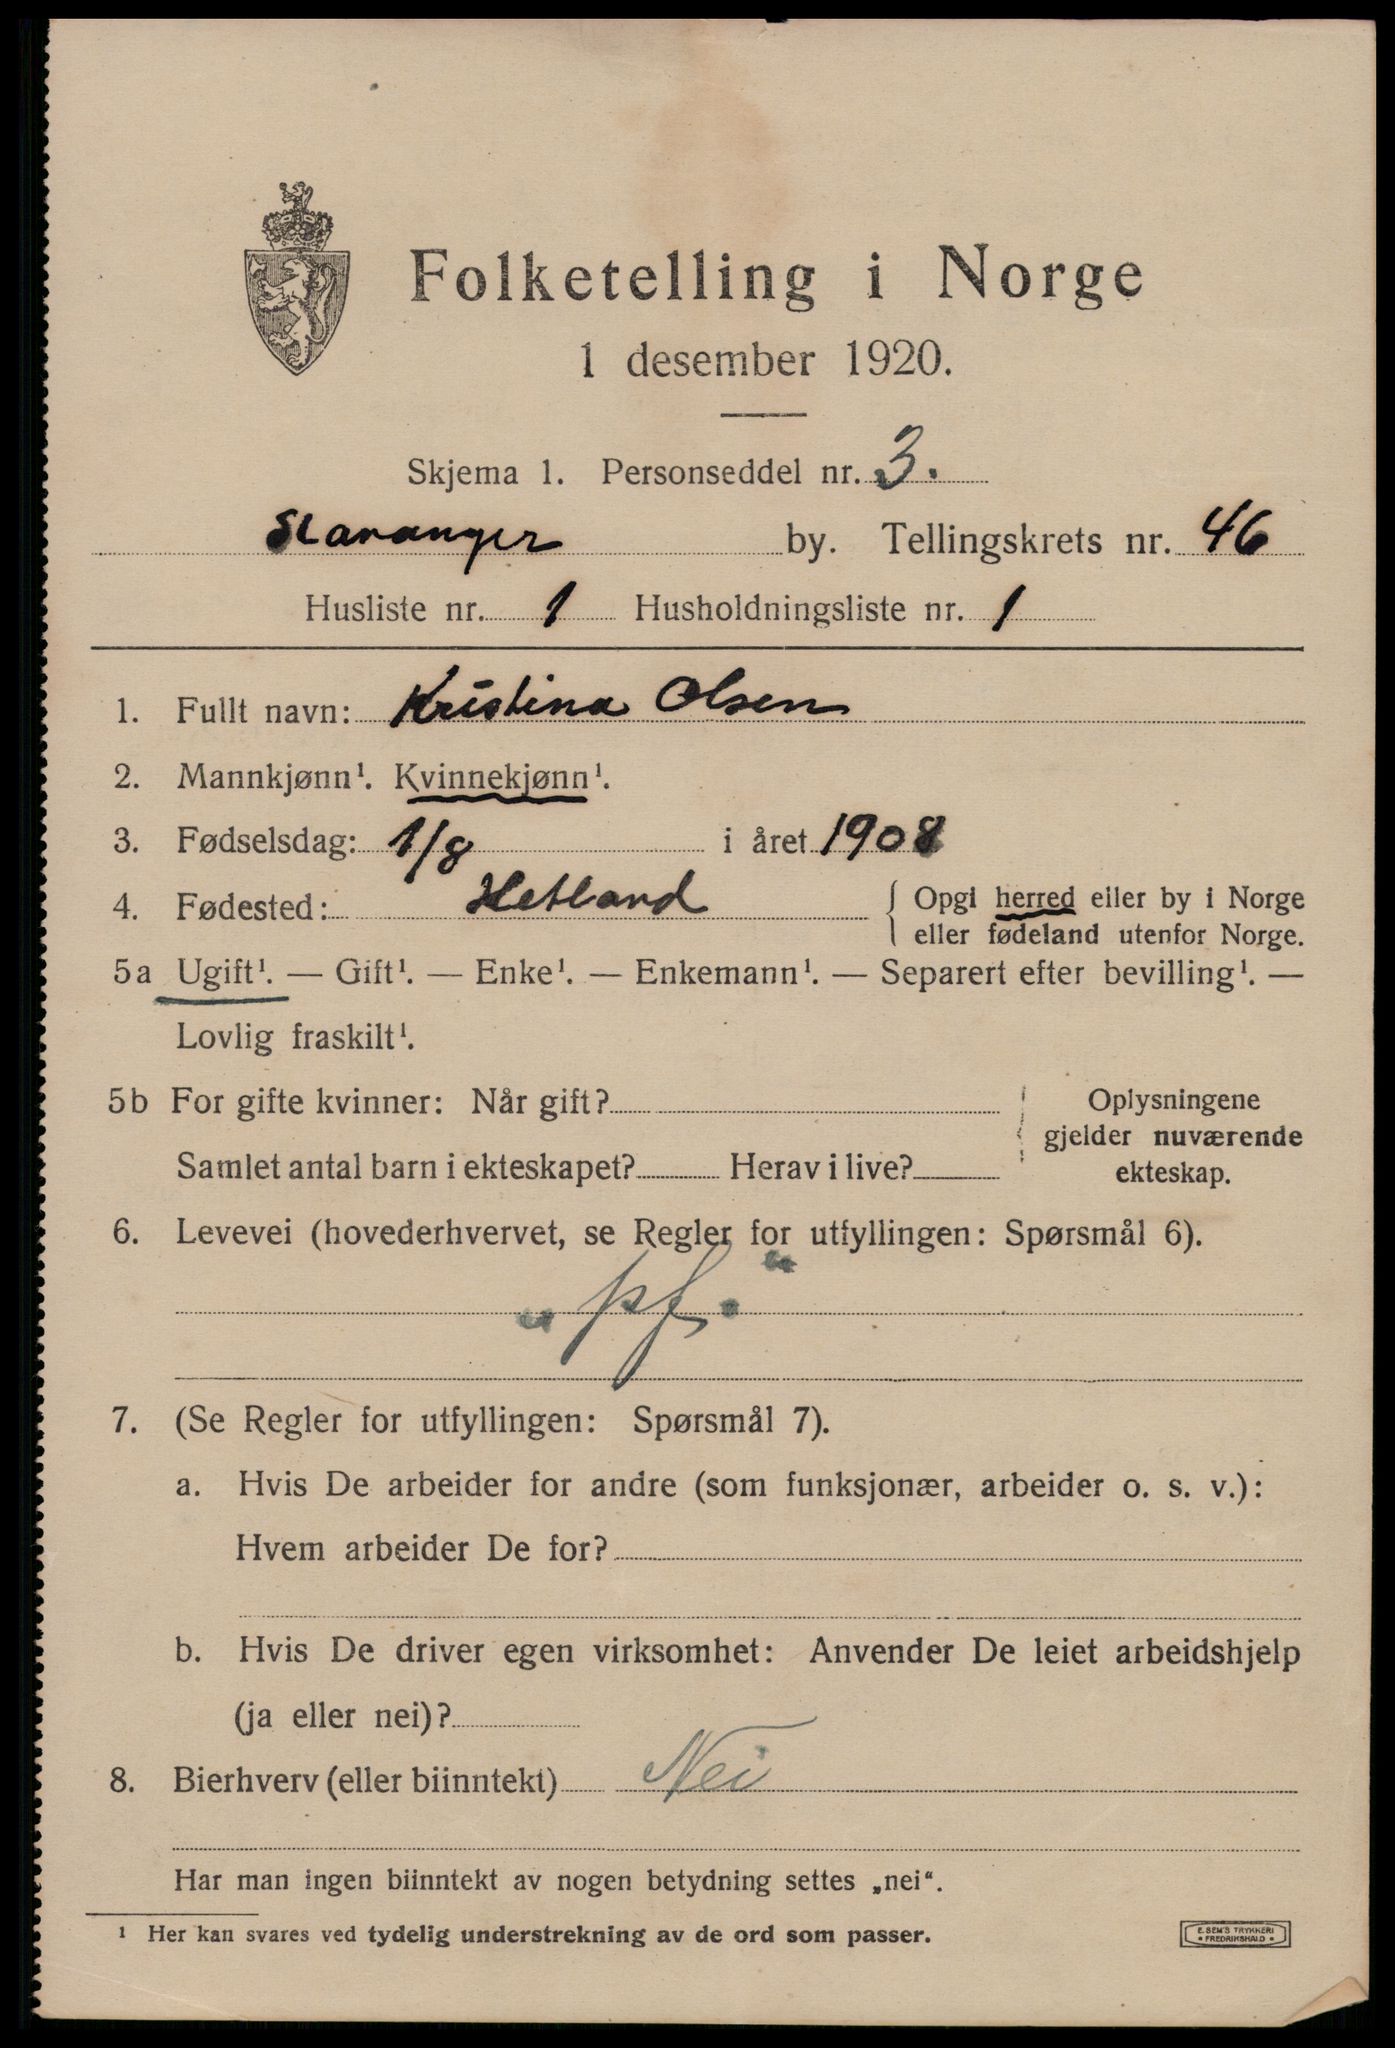 Folketelling i Norge
1 desember 1920.
Skjema 1. Personseddel nr. 3.
Stavanger by. Tellingskrets nr. 46
Husliste nr. 1 Husholdningsliste nr. 1
1. Fullt navn: Kristina Olsen
2. Mannkjønn¹. Kvinnekjønn¹.
3. Fødselsdag: 1/8 i året 1908
4. Fødested: Hetland { Opgi herred eller by i Norge
eller fødeland utenfor Norge.
5a Ugift¹. — Gift¹. — Enke¹. — Enkemann¹. — Separert efter bevilling¹. —
Lovlig fraskilt¹.
5b For gifte kvinner: Når gift? Oplysningene
gjelder nuværende
Samlet antal barn i ekteskapet? Herav i live? ekteskap.
6. Levevei (hovederhvervet, se Regler for utfyllingen: Spørsmål 6).
„pf."
7. (Se Regler for utfyllingen: Spørsmål 7).
a. Hvis De arbeider for andre (som funksjonær, arbeider o. s. v.):
Hvem arbeider De for?
b. Hvis De driver egen virksomhet: Anvender De leiet arbeidshjelp
(ja eller nei)?
8. Bierhverv (eller biinntekt) Nei
Har man ingen biinntekt av nogen betydning settes „nei“.
¹ Her kan svares ved tydelig understrekning av de ord som passer.
E. SEM'S TRYKKERI
• FREDRIKSHALD •